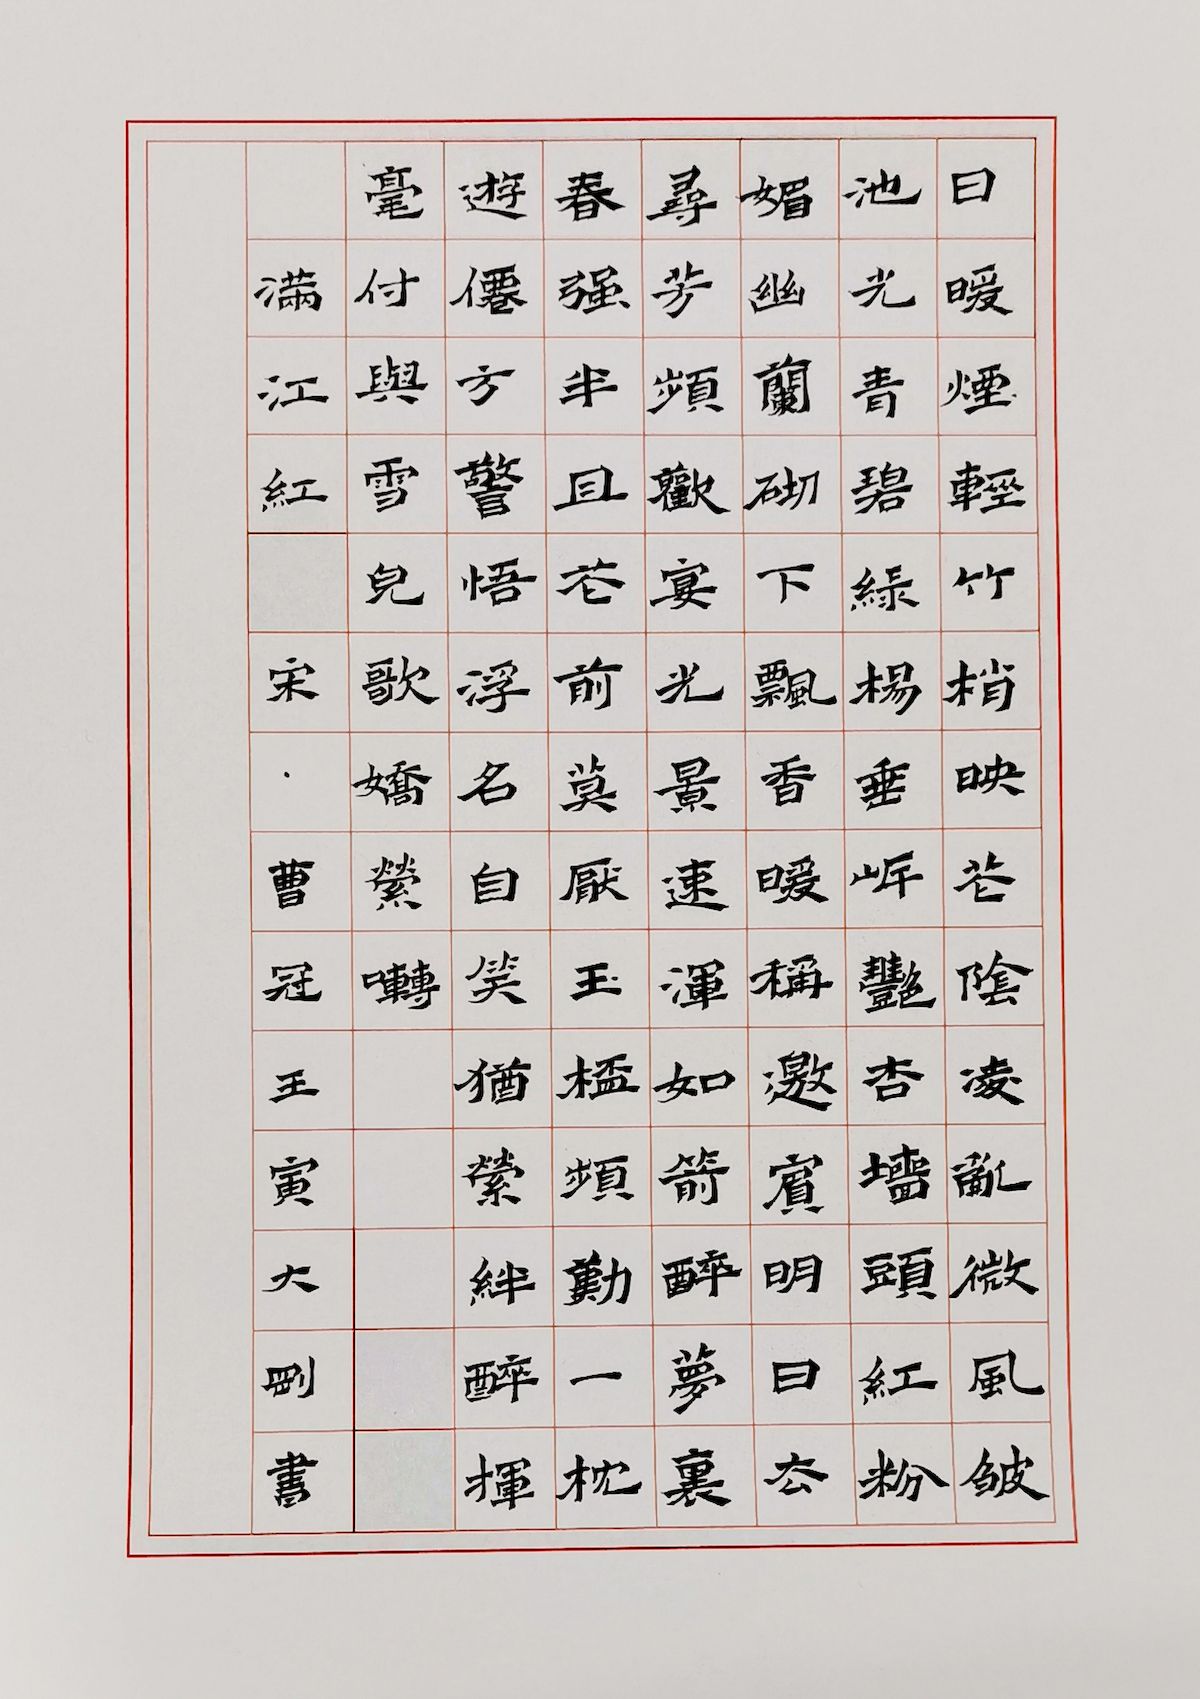 日暖煙輕竹梢映花陰凌亂微風皱
池光青碧綠楊垂岸豔杏墻頭紅粉
媚幽蘭砌下飄香暖稱邀賓明日去
尋芳頻歡宴光景速渾如箭醉夢裏
春强半且花前莫厭玉杯頻勤一枕
遊僊方警悟浮名自笑猶縈絆醉揮
毫付與雪兒歌嬌縈囀
滿江紅 宋·曹冠壬寅大剛書